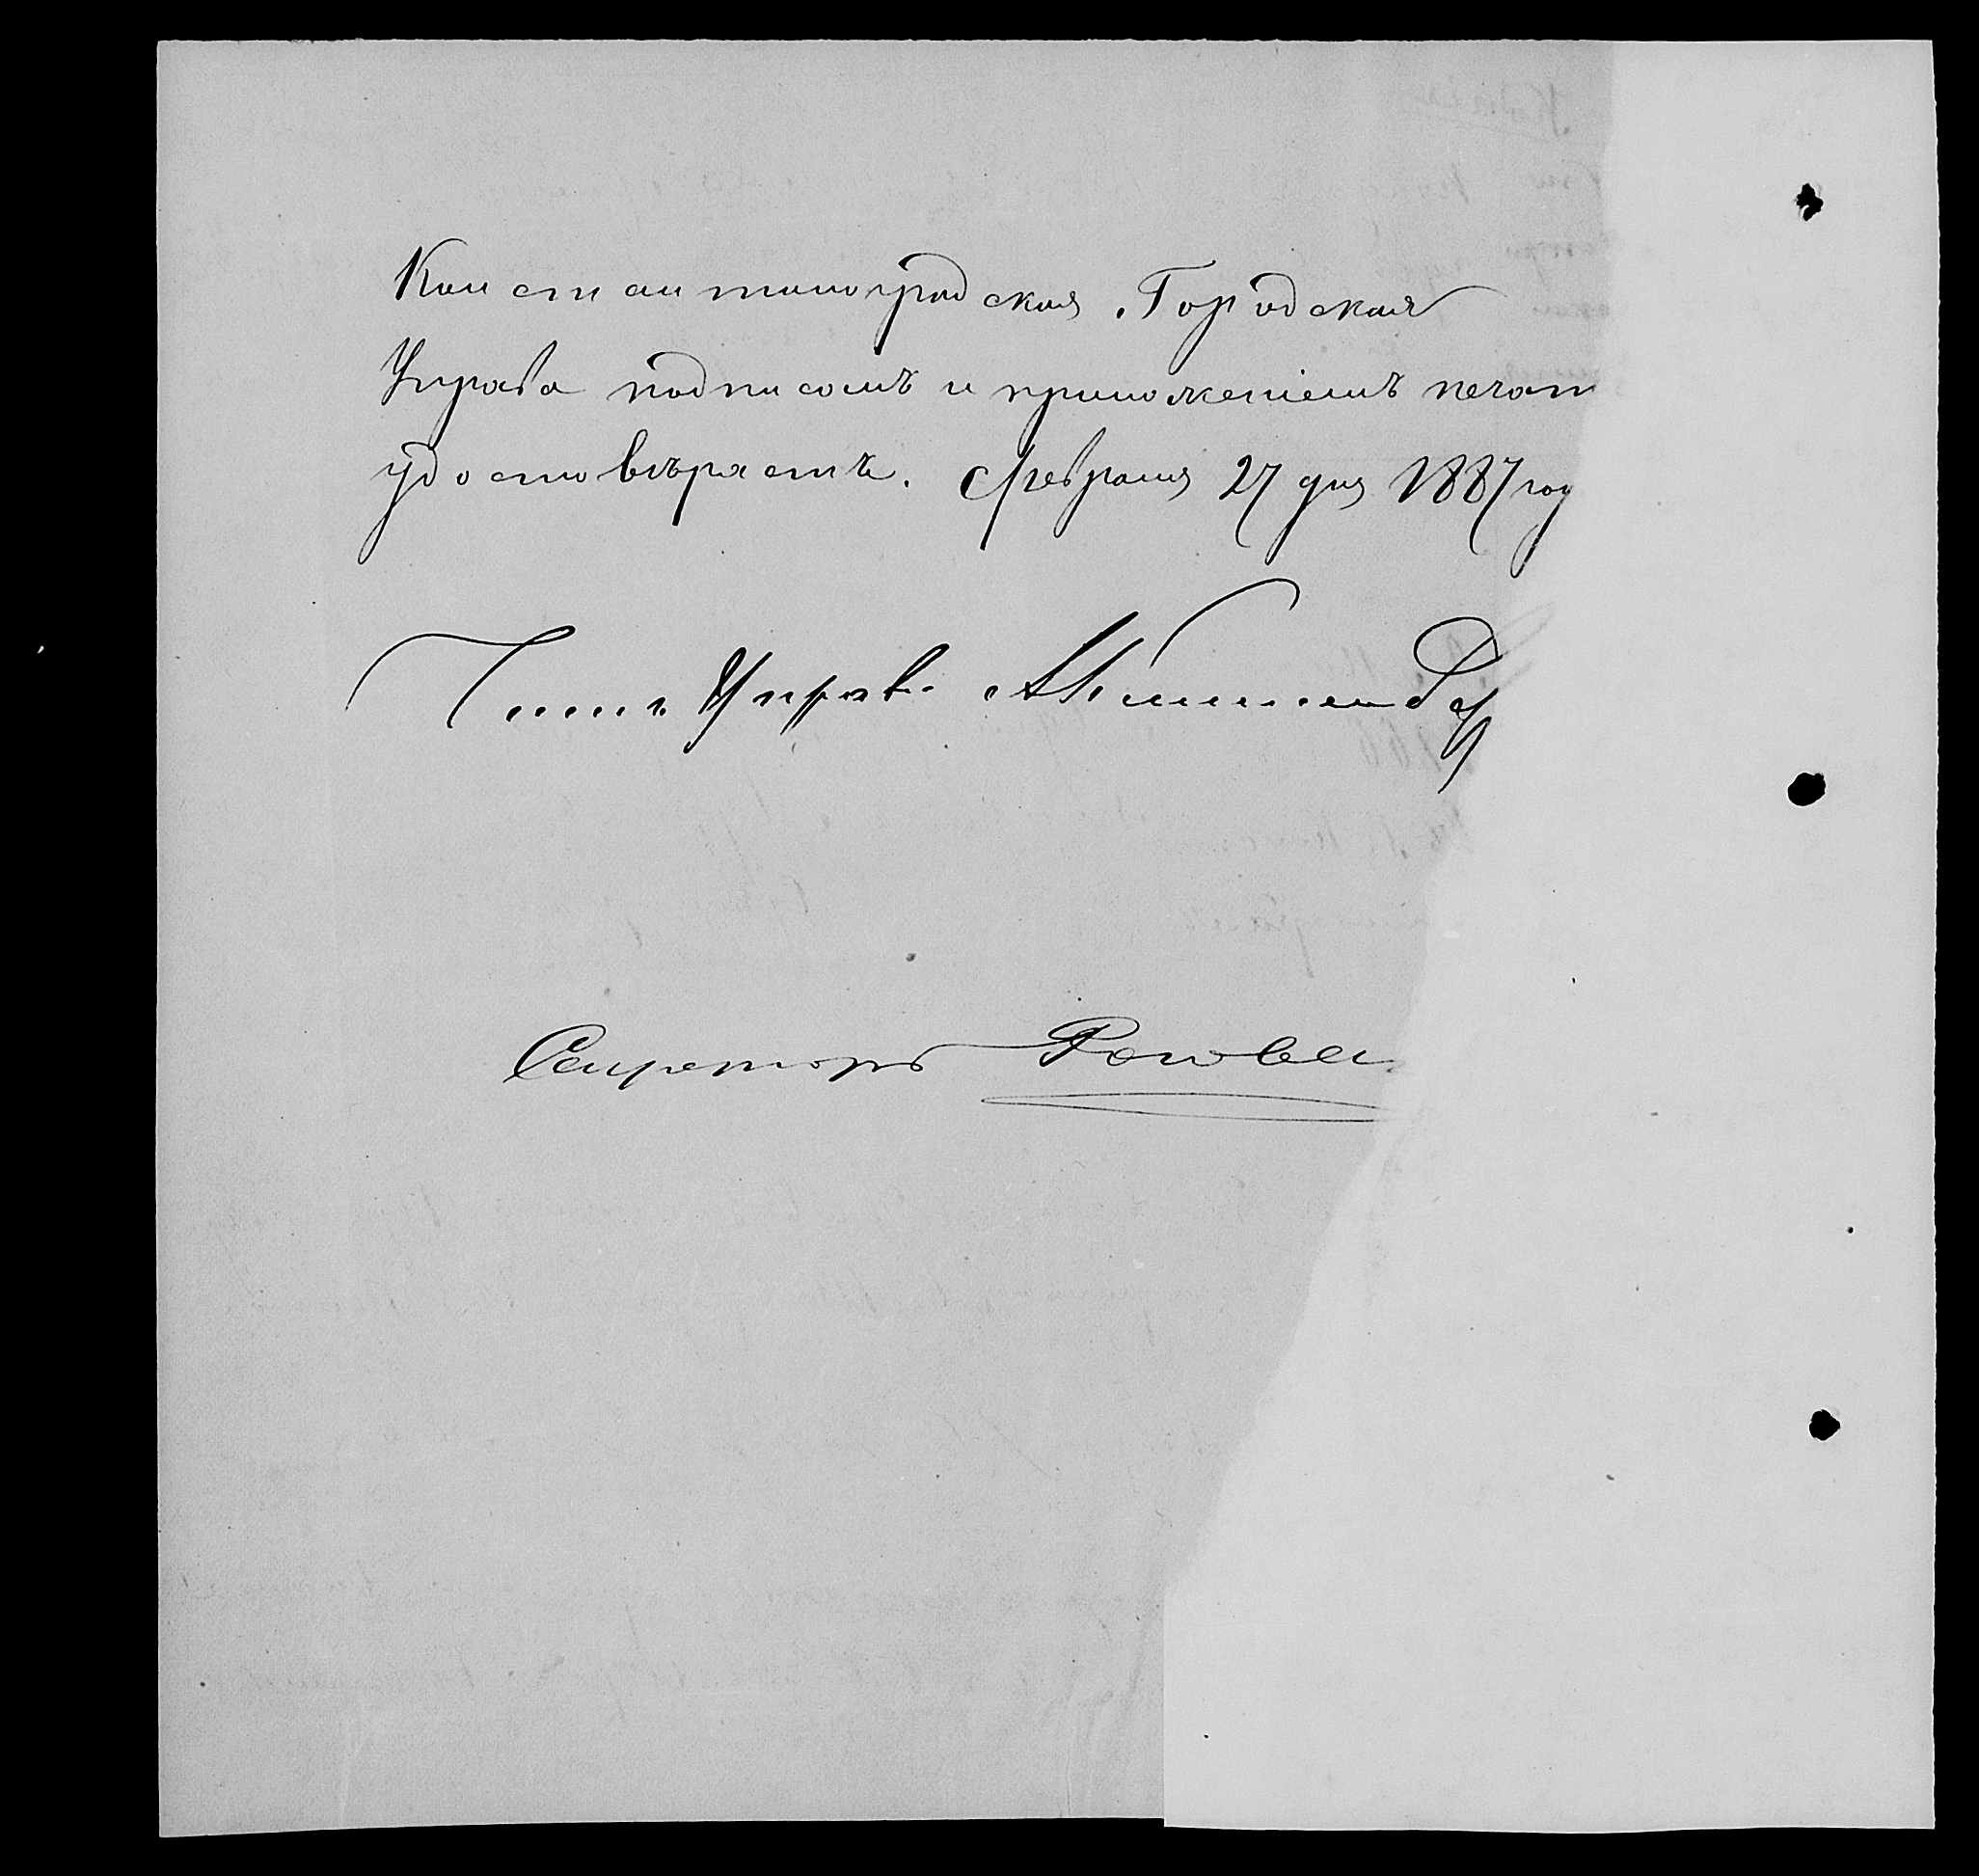 Константиноградская Городская
Управа подписомъ и приложеніемъ печат
удостовѣряетъ. Февраля 27 дня 1887 год
Членъ Управы
Секретарь